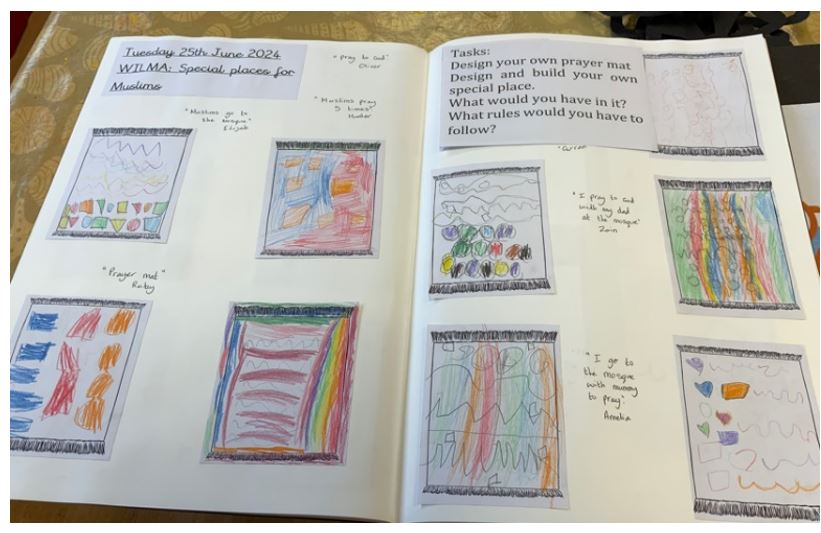 Tuesday 25th June 2024
WILMA: Special places for
Muslims
"pray to God"
Oliver
"Muslims go to
the mosque"
Elijah
"Muslims pray
5 times"
Hunter
"Prayer mat"
Ruby
Tasks:
Design your own prayer mat
Design and build your own
special place.
What would you have in it?
What rules would you have to
follow?
"I pray to God
with my dad
at the mosque"
Zain
"I go to
the mosque
with mummy
to pray".
Amelia